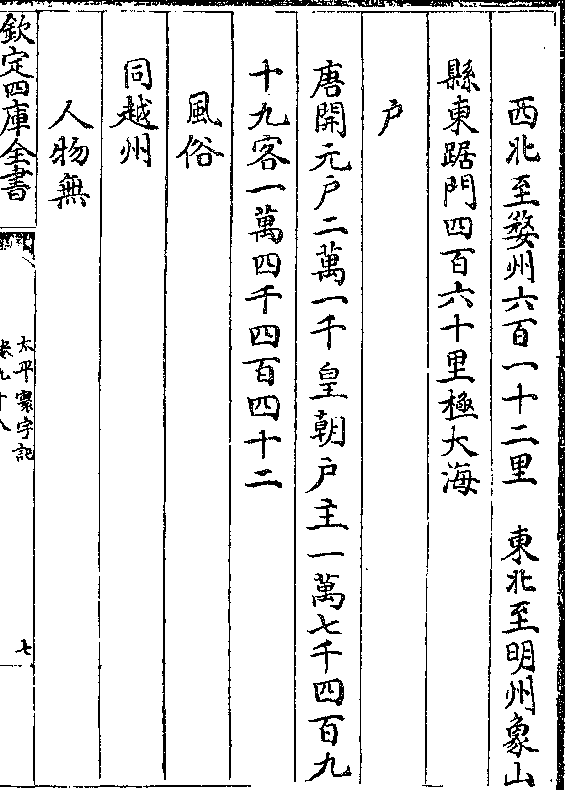 西北至婺州六百一十二里　東北至明州象山
縣東踞門四百六十里極大海
戶
唐開元戶二萬一千皇朝戶主一萬七千四百九
十九客一萬四千四百四十二
風俗
同越州
人物無
欽定四庫全書
太平寰宇記
卷九十八
七